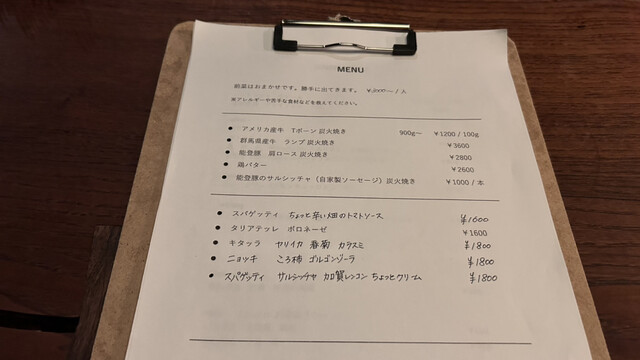 MENU
前菜はおまかせです。勝手に出てきます。 ¥2000〜/人
※アレルギーや苦手な食材などを教えてください。
● アメリカ産牛 Tボーン 炭火焼き 900g〜 ¥1200 / 100g
● 群馬県産牛 ランプ 炭火焼き ¥3600
● 能登豚 肩ロース 炭火焼き ¥2800
● 鶏バター ¥2600
● 能登豚のサルシッチャ（自家製ソーセージ）炭火焼き ¥1000 / 本
● スパゲッティ ちょっと辛い畑のトマトソース ¥1600
● タリアテッレ ボロネーゼ ¥1600
● キタッラ ヤリイカ 春菊 カラスミ ¥1800
● ニョッキ ころ柿 ゴルゴンゾーラ ¥1800
● スパゲッティ サルシッチャ 加賀レンコン ちょっとクリーム ¥1800